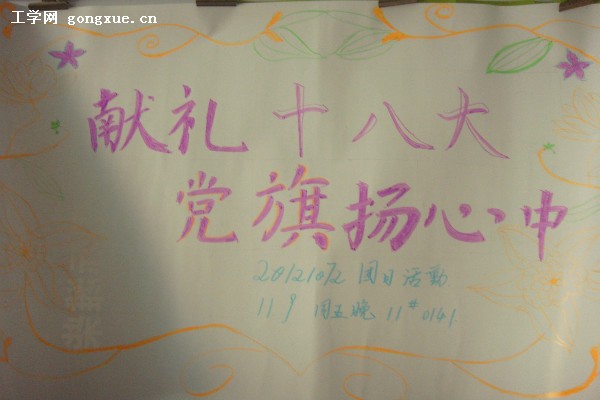 工学网 gongxue.cn
献礼十八大
党旗扬心中
20121072 团日活动
11 9 周五晚 11# 0141